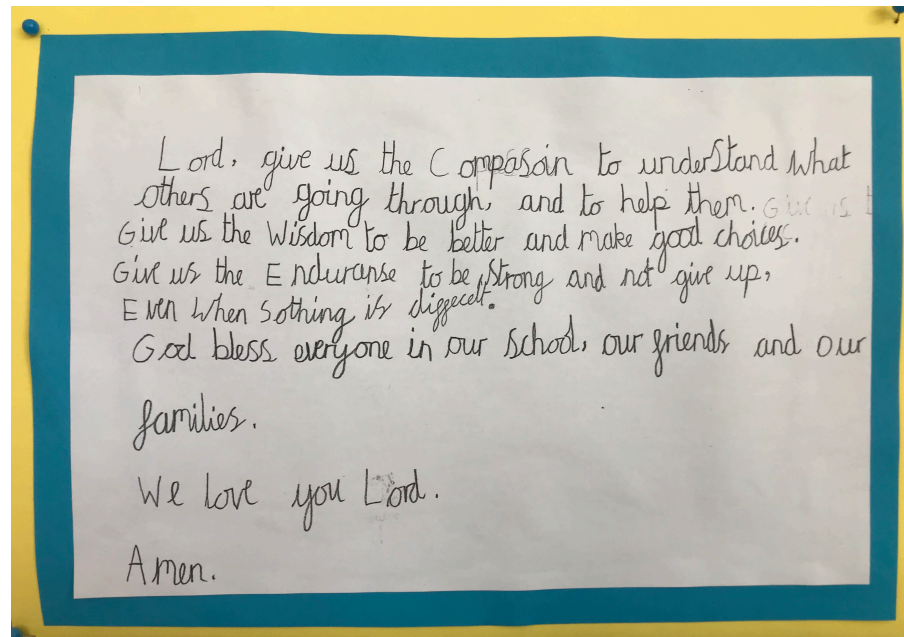 Lord, give us the Compasoin to understand what
others are going through, and to help them. Give us t
Give us the Wisdom to be better and make good choices.
Give us the Enduranse to be strong and not give up,
Even when Sothing is diffecelt.
God bless everyone in our School, our friends and our
families.
We love you Lord.
Amen.